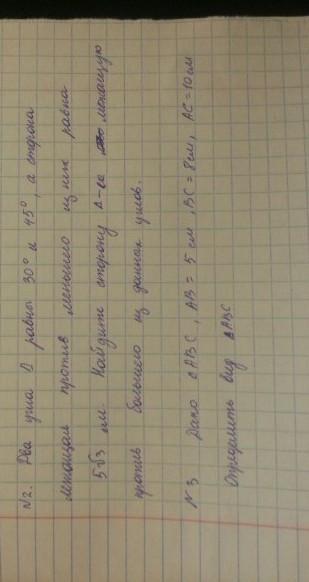 №2. Два угла Δ равны 30° и 45°, а сторона
лежащая против меньшего из них равна
5√3 см. Найдите сторону Δ-ка лежащую
против большего из данных углов.
№3 Дано ΔABC, AB = 5 см, BC = 8см, AC = 10 см
Определить вид ΔABC